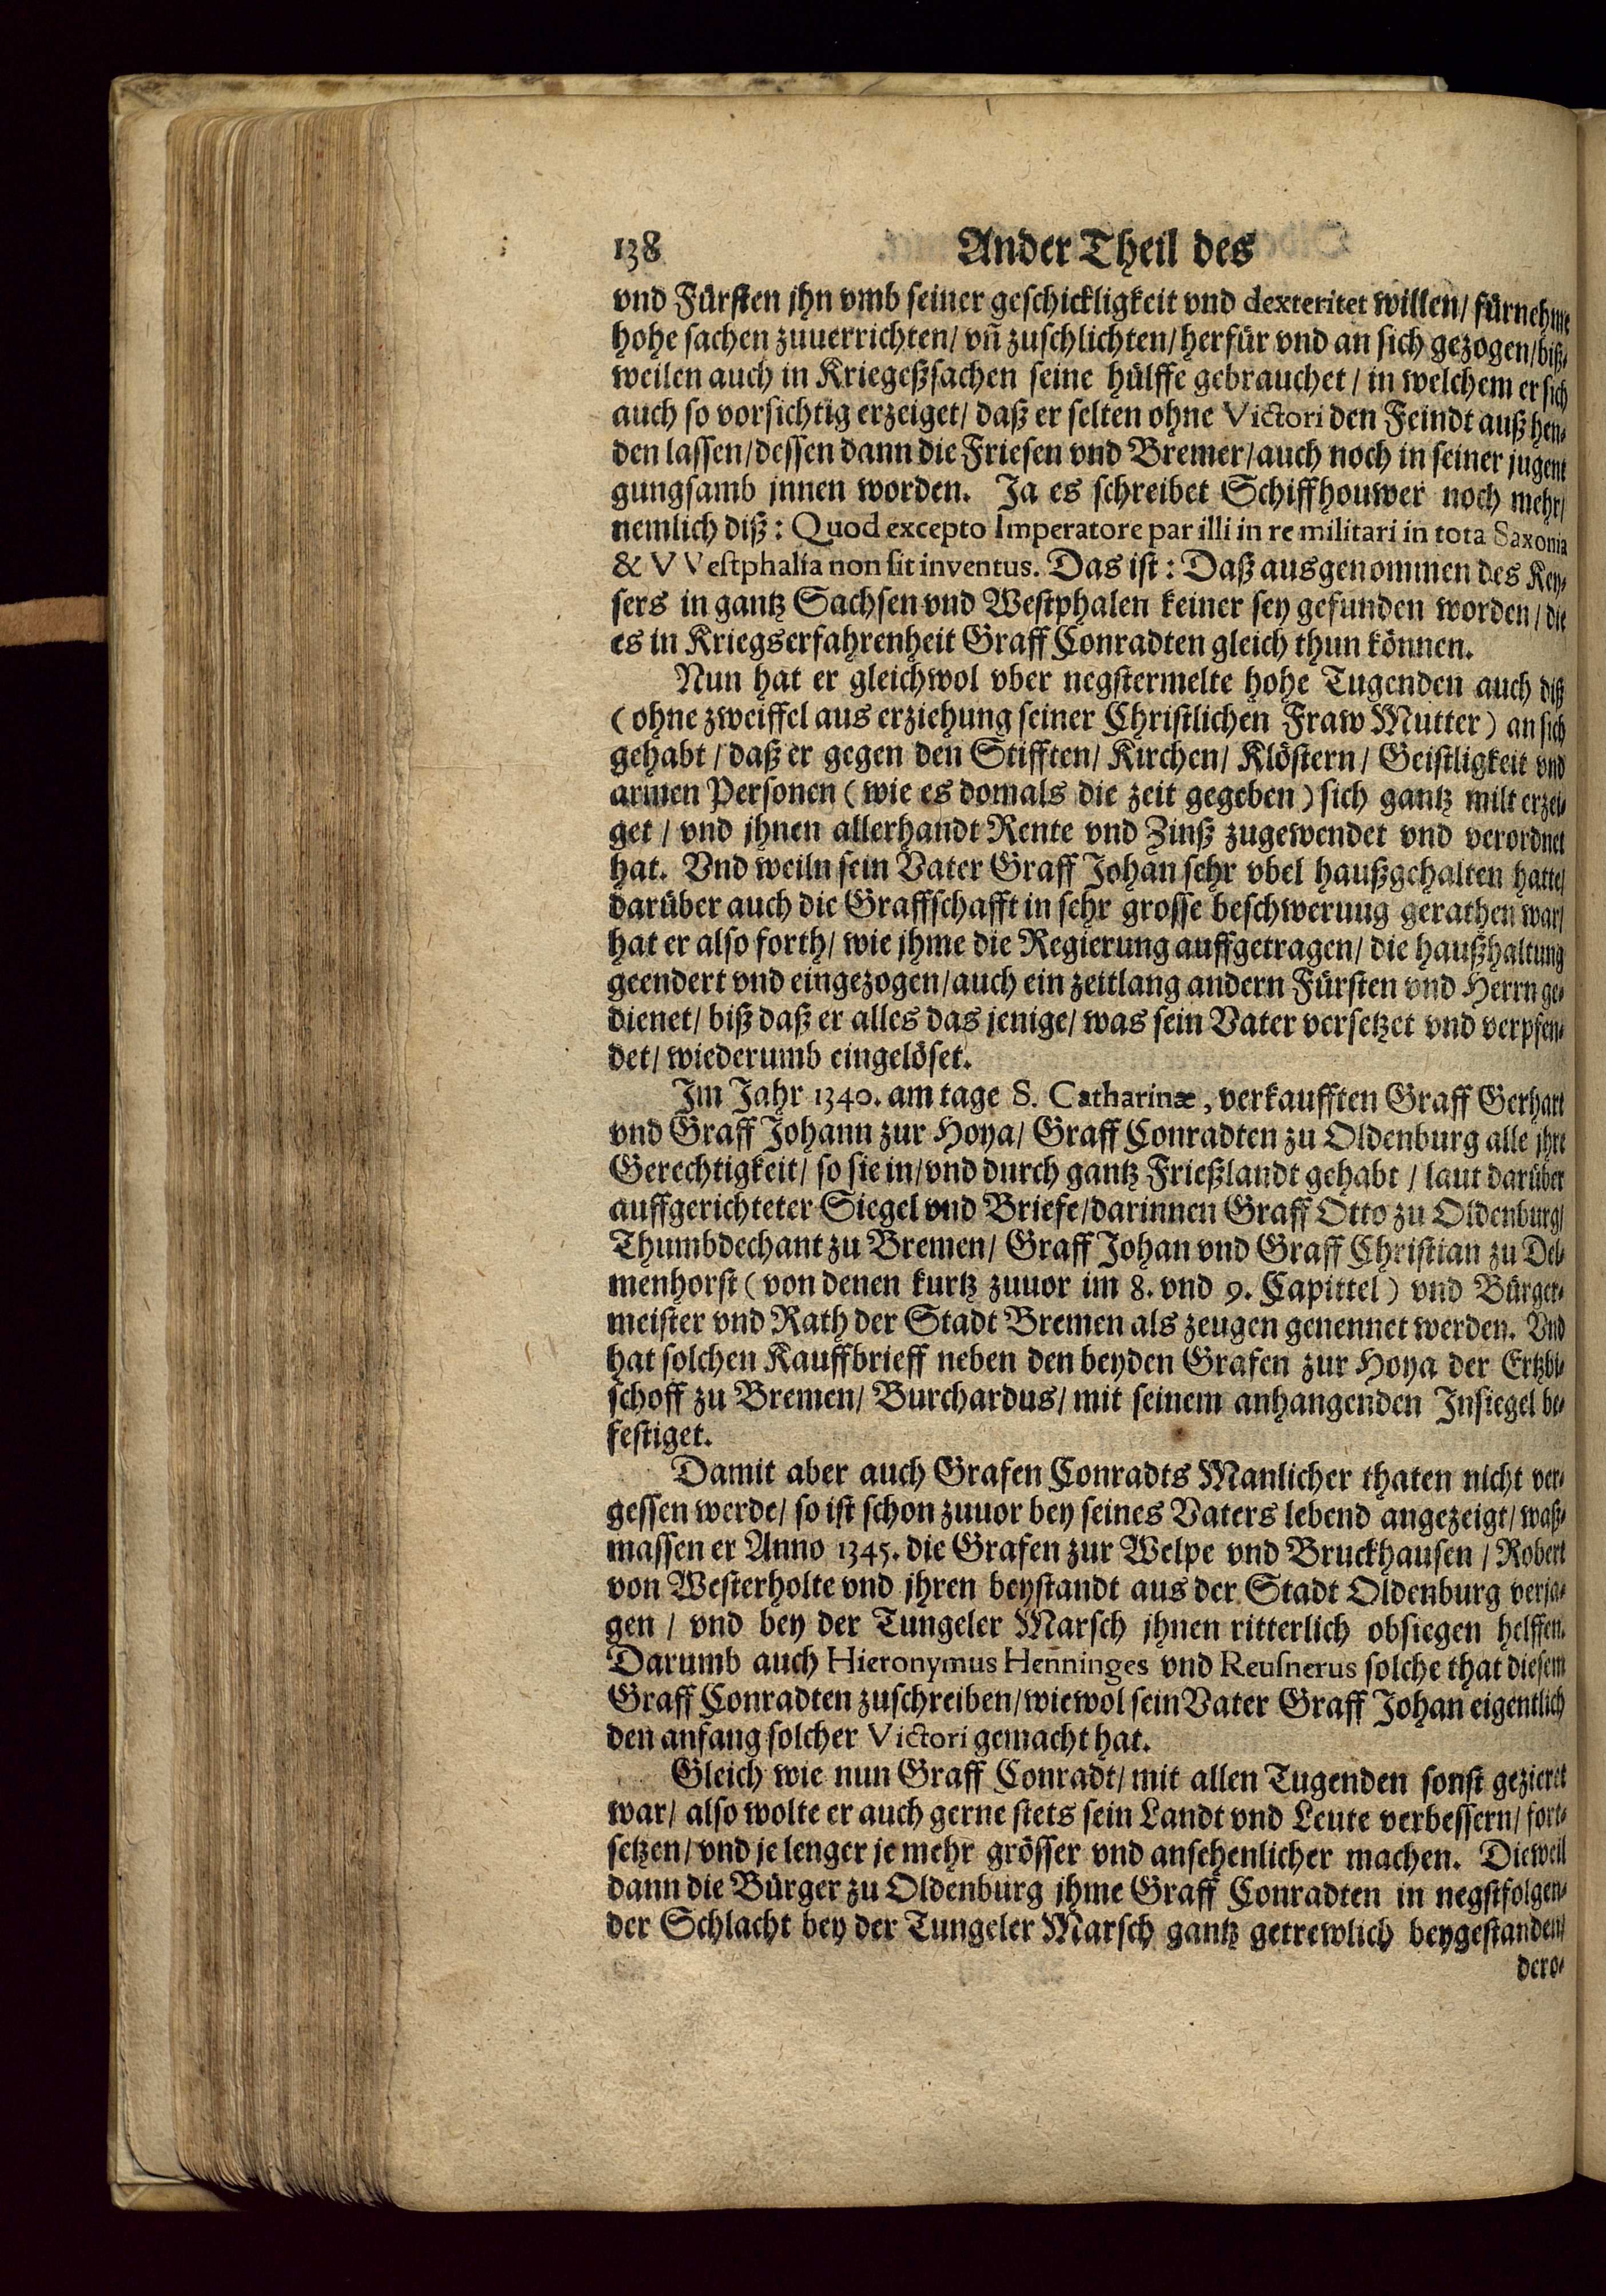 138 Ander Theil des
vnd Fürsten jhn vmb seiner geschickligkeit vnd dexteritet willen/ fürnehme
hohe sachen zuuerrichten/ vñ zuschlichten/ herfür vnd an sich gezogen/ biß-
weilen auch in Kriegeßsachen seine hülffe gebrauchet/ in welchem er sich
auch so vorsichtig erzeiget/ daß er selten ohne Victori den Feindt auß hen-
den lassen/ dessen dann die Friesen vnd Bremer/ auch noch in seiner jugent
gungsamb jnnen worden. Ja es schreibet Schiffhouwer noch mehr/
nemlich diß: Quod excepto Imperatore par illi in re militari in tota Saxonia
& VVestphalia non sit inventus. Das ist: Daß ausgenommen des Key-
sers in gantz Sachsen vnd Westphalen keiner sey gefunden worden/ die
es in Kriegserfahrenheit Graff Conradten gleich thun können.
Nun hat er gleichwol vber negstermelte hohe Tugenden auch diß
(ohne zweiffel aus erziehung seiner Christlichen Fraw Mutter) an sich
gehabt/ daß er gegen den Stifften/ Kirchen/ Klöstern/ Geistligkeit vnd
armen Personen (wie es domals die zeit gegeben) sich gantz milt erzei-
get/ vnd jhnen allerhandt Rente vnd Zinß zugewendet vnd verordnet
hat. Vnd weiln sein Vater Graff Johan sehr vbel haußgehalten hatte/
darüber auch die Graffschafft in sehr grosse beschwerung gerathen war/
hat er also forth/ wie jhme die Regierung auffgetragen/ die haußhaltung
geendert vnd eingezogen/ auch ein zeitlang andern Fürsten vnd Herrn ge-
dienet/ biß daß er alles das jenige/ was sein Vater versetzet vnd verpfen-
det/ wiederumb eingelöset.
Im Jahr 1340. am tage S. Catharinæ, verkaufften Graff Gerhart
vnd Graff Johann zur Hoya/ Graff Conradten zu Oldenburg alle jhre
Gerechtigkeit/ so sie in/ vnd durch gantz Frießlandt gehabt/ laut darüber
auffgerichteter Siegel vnd Briefe/ darinnen Graff Otto zu Oldenburg/
Thumbdechant zu Bremen/ Graff Johan vnd Graff Christian zu Del-
menhorst (von denen kurtz zuuor im 8. vnd 9. Capittel) vnd Bürger-
meister vnd Rath der Stadt Bremen als zeugen genennet werden. Vnd
hat solchen Kauffbrieff neben den beyden Grafen zur Hoya der Ertzbi-
schoff zu Bremen/ Burchardus/ mit seinem anhangenden Insiegel be-
festiget.
Damit aber auch Grafen Conradts Manlicher thaten nicht ver-
gessen werde/ so ist schon zuuor bey seines Vaters lebend angezeigt/ waß-
massen er Anno 1345. die Grafen zur Welpe vnd Bruckhausen/ Robert
von Westerholte vnd jhren beystandt aus der Stadt Oldenburg verja-
gen/ vnd bey der Tungeler Marsch jhnen ritterlich obsiegen helffen.
Darumb auch Hieronymus Heñinges vnd Reusnerus solche that diesem
Graff Conradten zuschreiben/ wiewol sein Vater Graff Johan eigentlich
den anfang solcher Victori gemacht hat.
Gleich wie nun Graff Conradt/ mit allen Tugenden sonst gezieret
war/ also wolte er auch gerne stets sein Landt vnd Leute verbessern/ fort-
setzen/ vnd je lenger je mehr grösser vnd ansehenlicher machen. Dieweil
dann die Bürger zu Oldenburg jhme Graff Conradten in negstfolgen-
der Schlacht bey der Tungeler Marsch gantz getrewlich beygestanden/
dero-